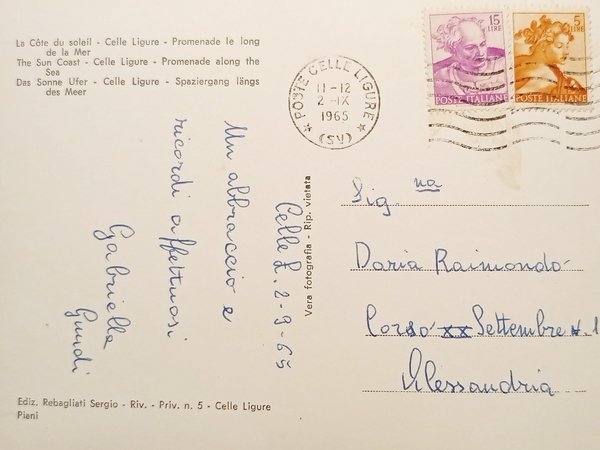 La Côte du soleil - Celle Ligure - Promenade le long
de la Mer
The Sun Coast - Celle Ligure - Promenade along the
Sea
Das Sonne Ufer - Celle Ligure - Spaziergang längs
des Meer
15
LIRE
POSTE ITALIANE
5
LIRE
POSTE ITALIANE
POSTE CELLE LIGURE
11-12
2-IX
1965
(SV)
Celle L. 2-9-65
Un abbraccio e
ricordi affettuosi
Gabriella
Guidi
Vera fotografia - Rip. vietata
Sig.na
Daria Raimondo
Corso XX Settembre n. 1
Alessandria
Ediz. Rebagliati Sergio - Riv. - Priv. n. 5 - Celle Ligure
Piani